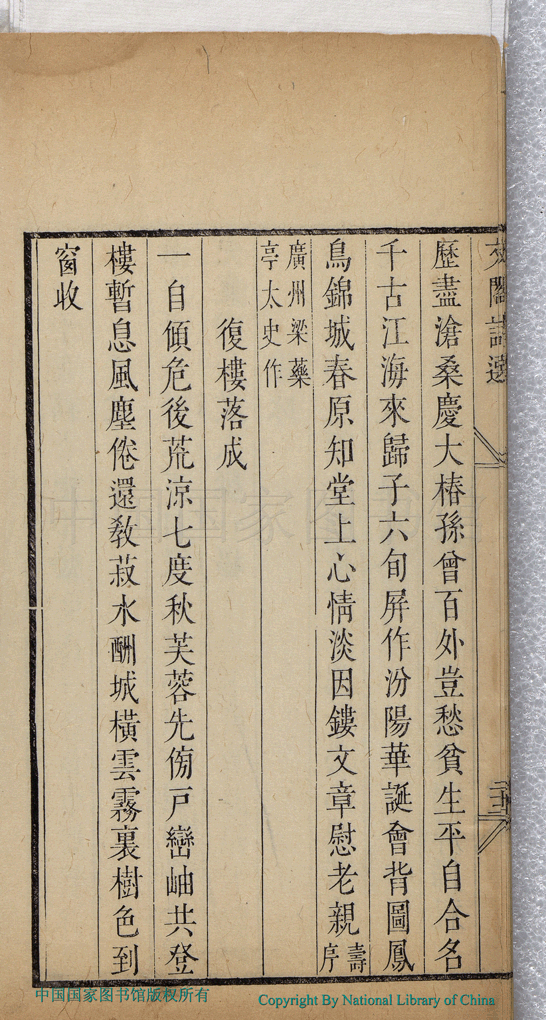 歷盡滄桑慶大椿孫曾百外豈愁貧生平自合名
千古江海來歸子六旬屏作汾陽華誕會背圖鳳
鳥錦城春原知堂上心情淡因鏤文章慰老親壽序
廣州梁藥
亭太史作
復樓落成
一自傾危後荒涼七度秋芙蓉先俯戸巒岫共登
樓暫息風塵倦還教菽水酬城橫雲霧裏樹色到
窗收
中国国家图书馆版权所有
Copyright By National Library of China